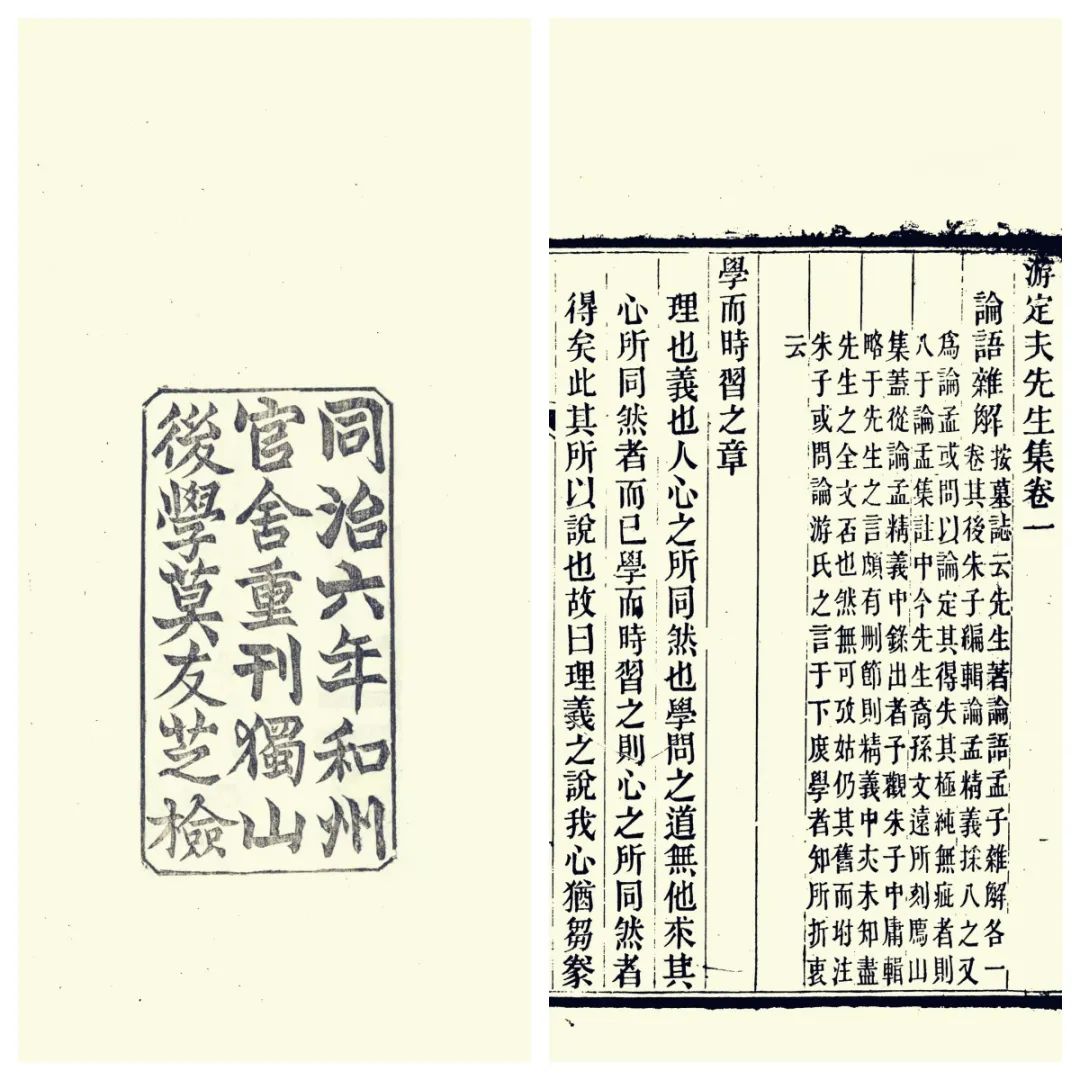 同治六年和州
官舍重刊獨山
後學莫友芝檢
游定夫先生集卷一
論語雜解 按墓誌云先生著論語孟子雜解各一
卷其後朱子編輯論孟精義採入之又
爲論孟或問以論定其得失其極純無疵者則
入于論孟集註中今先生裔孫文遠所刻廌山
集蓋從論孟精義中錄出者子觀朱子中庸輯
略于先生之言頗有刪節則精義中夫未知盡
先生之全文否也然無可攷姑仍其舊而坿注
朱子或問論游氏之言于下庻學者知所折衷
云
學而時習之章
理也義也人心之所同然也學問之道無他求其
心所同然者而已學而時習之則心之所同然者
得矣此其所以說也故曰理義之說我心猶芻豢